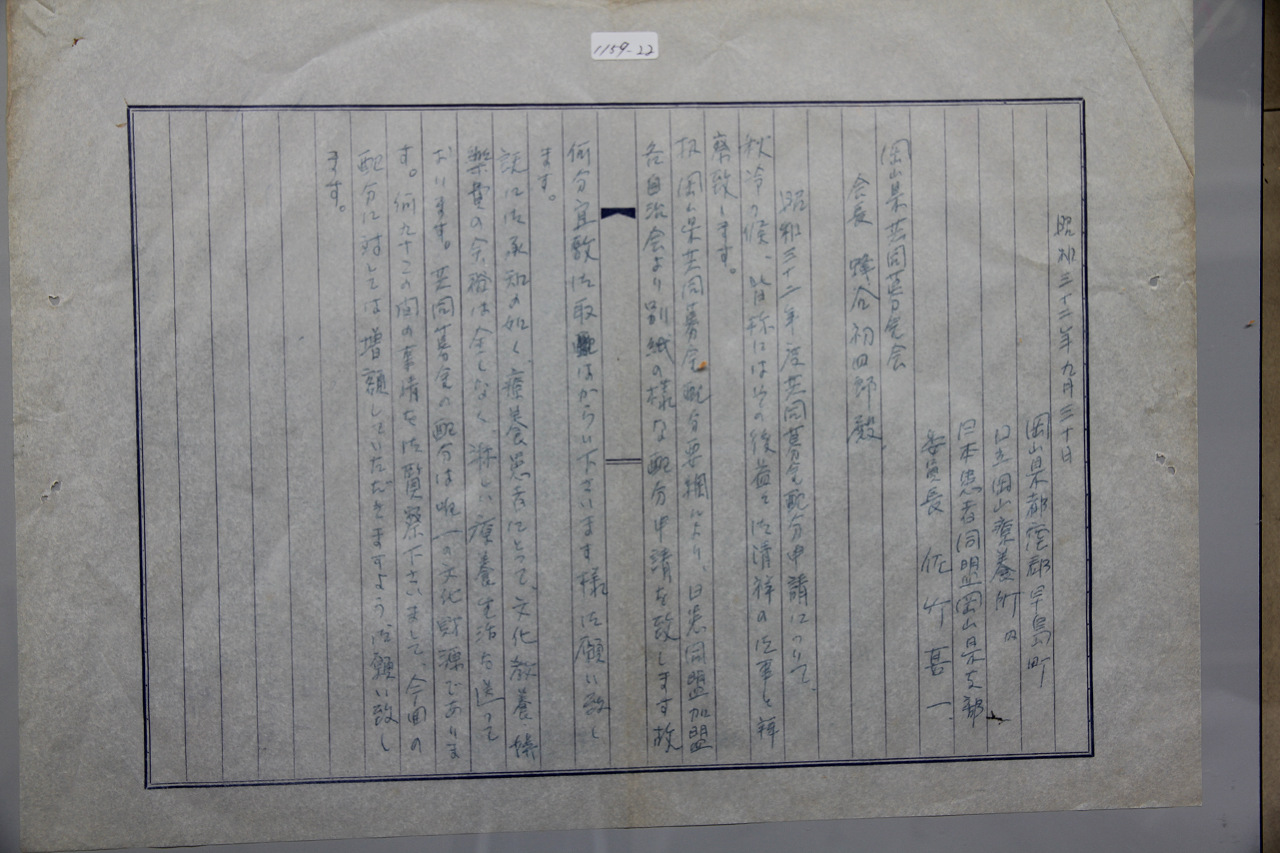 1159-22
昭和三十二年九月三十日
岡山県都窪郡早島町
国立岡山療養所内
日本患者同盟岡山県支部
委員長 佐竹喜一
岡山県共同募金会
会長 蜂谷初四郎殿
昭和三十二年度共同募金配分申請について、
秋冷の候、皆様にはその後益々御清祥の御事と拝
察致します。
扨岡山県共同募金配分要綱により、日患同盟加盟
各自治会より別紙の様な配分申請を致します故
何分宜敷御取はからい下さいます様御願い致し
ます。
既に御承知の如く、療養患者にとって、文化教養娯
楽費の余裕は全くなく、淋しい療養生活を送って
おります。共同募金の配分は唯一の文化財源でありま
す。何卒この間の事情を御賢察下さいまして、今回の
配分に対しては増額していただきますよう、御願い致し
ます。